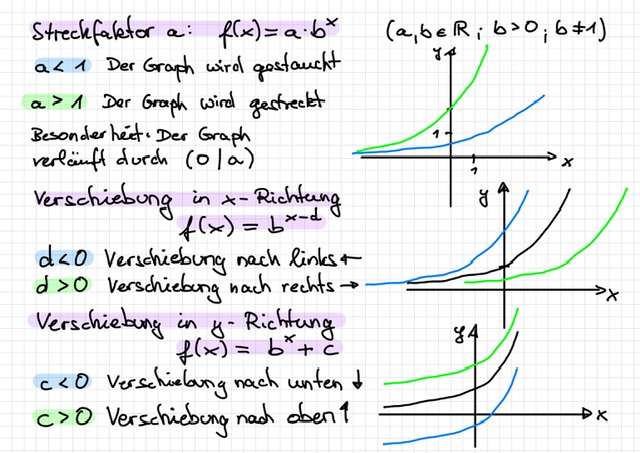 Streckfaktor a: f(x) = a · bˣ (a,b ∈ ℝ ; b > 0 ; b ≠ 1)
a < 1 Der Graph wird gestaucht
a > 1 Der Graph wird gestreckt
Besonderheit: Der Graph
verläuft durch (0|a)
y
1
1
x
Verschiebung in x-Richtung
f(x) = bˣ⁻ᵈ
d < 0 Verschiebung nach links ←
d > 0 Verschiebung nach rechts →
y
x
Verschiebung in y-Richtung
f(x) = bˣ + c
c < 0 Verschiebung nach unten ↓
c > 0 Verschiebung nach oben ↑
y
x